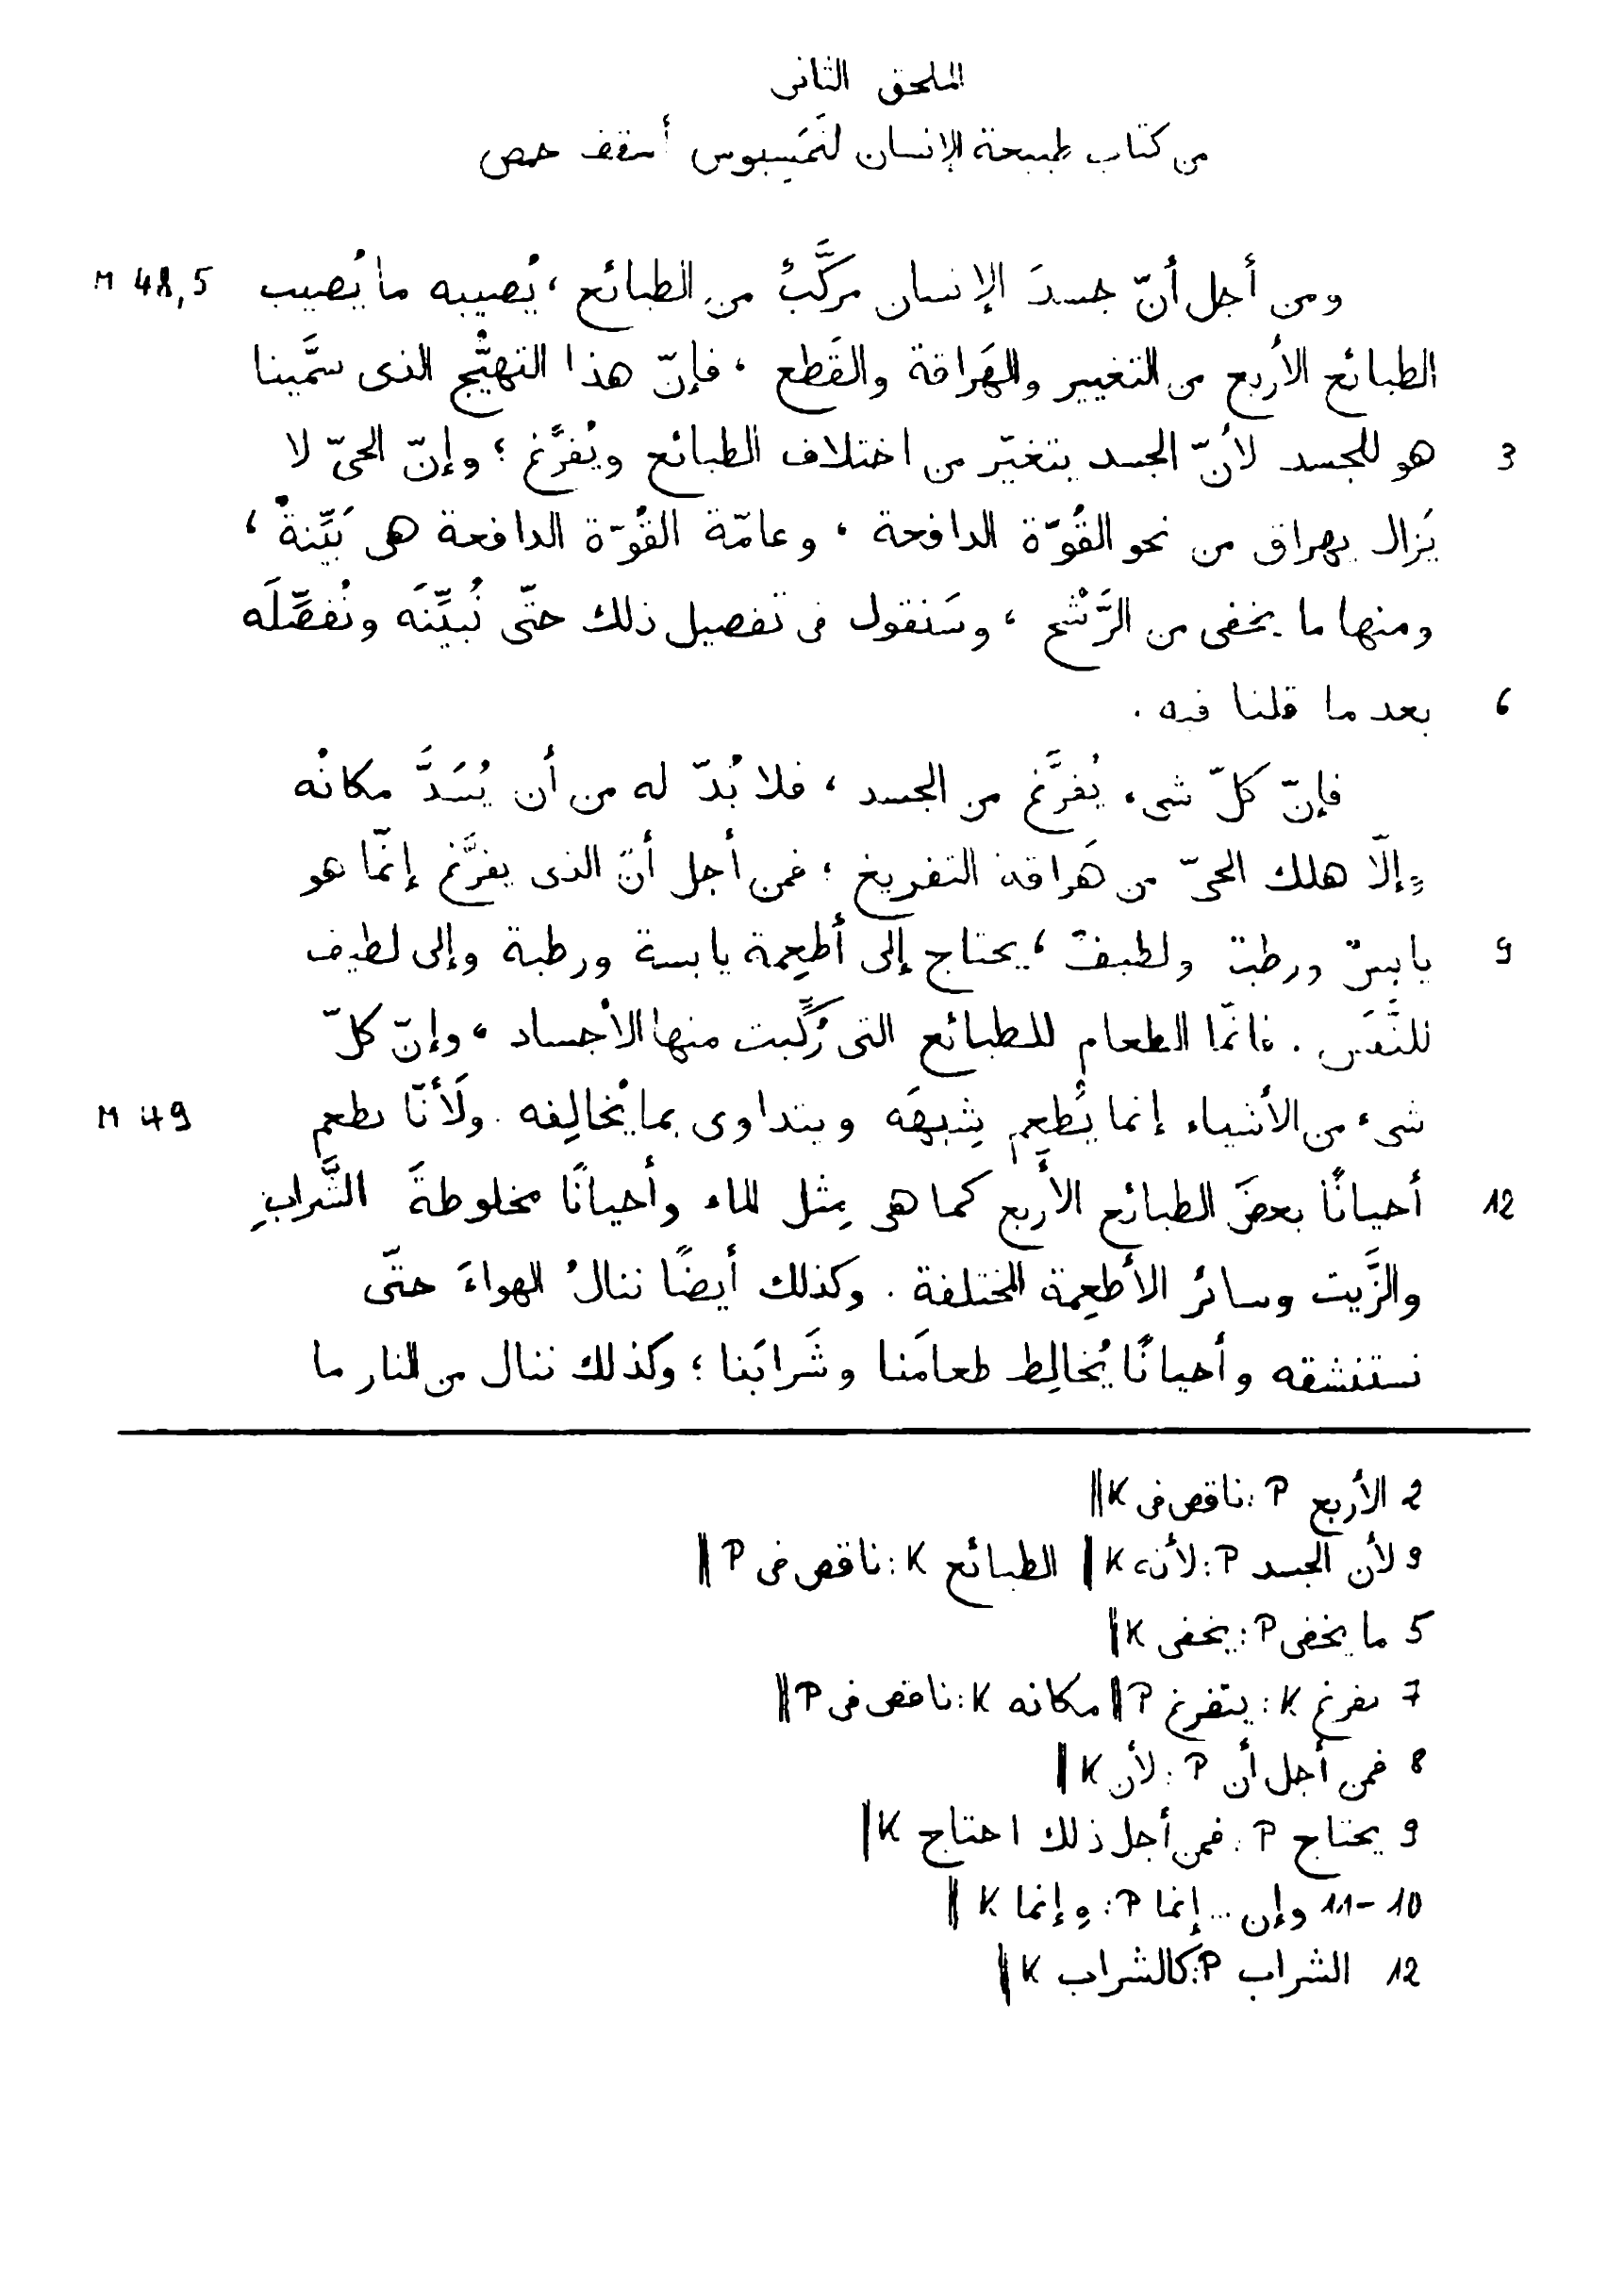 الملحق الثانى
من كتاب طبيعة الإنسان لنَمَيسيوس أسقف حمص
ومن أجل أنّ جسدَ الإنسان مركَّبٌ من الطبائع ، يُصيبه ما يُصيب M 48,5
الطبائع الأربع من التغيير والهَراقة والقَطع ، فإنّ هذا التهيُّج الذى سمَّينا
3 هو للجسد لأنّ الجسد يتغيّر من اختلاف الطبائع ويُفرَّغ ؛ وإنّ الحىّ لا
يَزال يهراق من نحو القُوّة الدافعة ، وعامّة القُوّة الدافعة هى بَيِّنةٌ ،
ومنها ما يخفى من الرَّشْح ، وسَنقول فى تفصيل ذلك حتّى نُبيِّنَه ونُفصِّلَه
6 بعد ما قلنا فيه .
فإنّ كلّ شىء يُفرَّغ من الجسد ، فلا بُدّ له من أن يُسَدَّ مكانُه
وإلّا هلك الحىّ من هَراقة التفريغ ؛ فمن أجل أنّ الذى يفرَّغ إنّما هو
9 يابسٌ ورطبٌ ولطيفٌ ، يحتاج إلى أطعِمة يابسة ورطبة وإلى لطيف
للنَّفَس . فانّما الطعام للطبائع التى رُكِّبت منها الأجساد ، وإنّ كلّ
شىء من الأشياء إنما يُطعِم شِبهَه ويتداوى بما يُخالِفه . ولَأنّا نطعم M 49
12 أحيانًا بعضَ الطبائع الأربع كما هى مِثل الماء وأحيانًا مخلوطةً الشَّرابِ
والزَّيت وسائر الأطعِمة المختلفة . وكذلك أيضًا ننالُ الهواءَ حتّى
نستنشقه وأحيانًا يُخالِط طعامَنا وشَرابَنا ؛ وكذلك ننال من النار ما
2 الأربع P : ناقص فى K ||
9 لأن الجسد P : لأنه K || الطبائع K : ناقص فى P ||
5 ما يخفى P : يخفى K ||
7 يفرغ K : يتفرغ P || مكانه K : ناقص فى P ||
8 فمن أجل أن P : لأن K ||
9 يحتاج P : فمن أجل ذلك احتاج K ||
10-11 وإن ... إنما P : وإنما K ||
12 الشراب P : كالشراب K ||